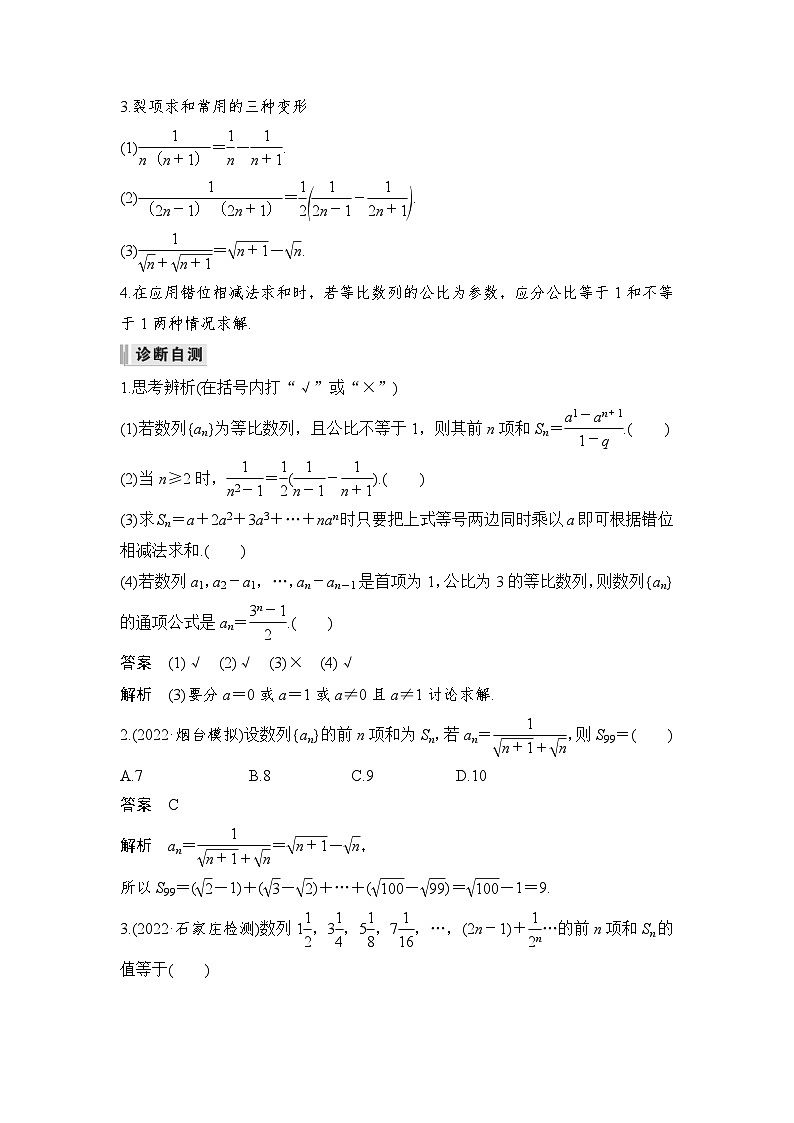 3.裂项求和常用的三种变形
(1)\frac{1}{n（n+1）}=\frac{1}{n}-\frac{1}{n+1}.
(2)\frac{1}{（2n-1）（2n+1）}=\frac{1}{2}\left(\frac{1}{2n-1}-\frac{1}{2n+1}\right).
(3)\frac{1}{\sqrt{n}+\sqrt{n+1}}=\sqrt{n+1}-\sqrt{n}.
4.在应用错位相减法求和时，若等比数列的公比为参数，应分公比等于 1 和不等
于 1 两种情况求解.
诊断自测
1.思考辨析(在括号内打“√”或“×”)
(1)若数列{a_n}为等比数列，且公比不等于 1，则其前 n 项和 S_n=\frac{a1-a^{n+1}}{1-q}.(　　)
(2)当 n≥2 时，\frac{1}{n^2-1}=\frac{1}{2}(\frac{1}{n-1}-\frac{1}{n+1}).(　　)
(3)求 S_n=a+2a^2+3a^3+…+na^n时只要把上式等号两边同时乘以 a 即可根据错位
相减法求和.(　　)
(4)若数列 a_1，a_2-a_1，…，a_n-a_{n-1}是首项为 1，公比为 3 的等比数列，则数列{a_n}
的通项公式是 a_n=\frac{3^n-1}{2}.(　　)
答案　(1)√　(2)√　(3)×　(4)√
解析　(3)要分 a=0 或 a=1 或 a≠0 且 a≠1 讨论求解.
2.(2022·烟台模拟)设数列{a_n}的前 n 项和为 S_n，若 a_n=\frac{1}{\sqrt{n+1}+\sqrt{n}}，则 S_{99}=(　　)
A.7　　B.8　　C.9　　D.10
答案　C
解析　a_n=\frac{1}{\sqrt{n+1}+\sqrt{n}}=\sqrt{n+1}-\sqrt{n}，
所以 S_{99}=(\sqrt{2}-1)+(\sqrt{3}-\sqrt{2})+…+(\sqrt{100}-\sqrt{99})=\sqrt{100}-1=9.
3.(2022·石家庄检测)数列 1\frac{1}{2}，3\frac{1}{4}，5\frac{1}{8}，7\frac{1}{16}，…，(2n-1)+\frac{1}{2^n}…的前 n 项和 S_n的
值等于(　　)